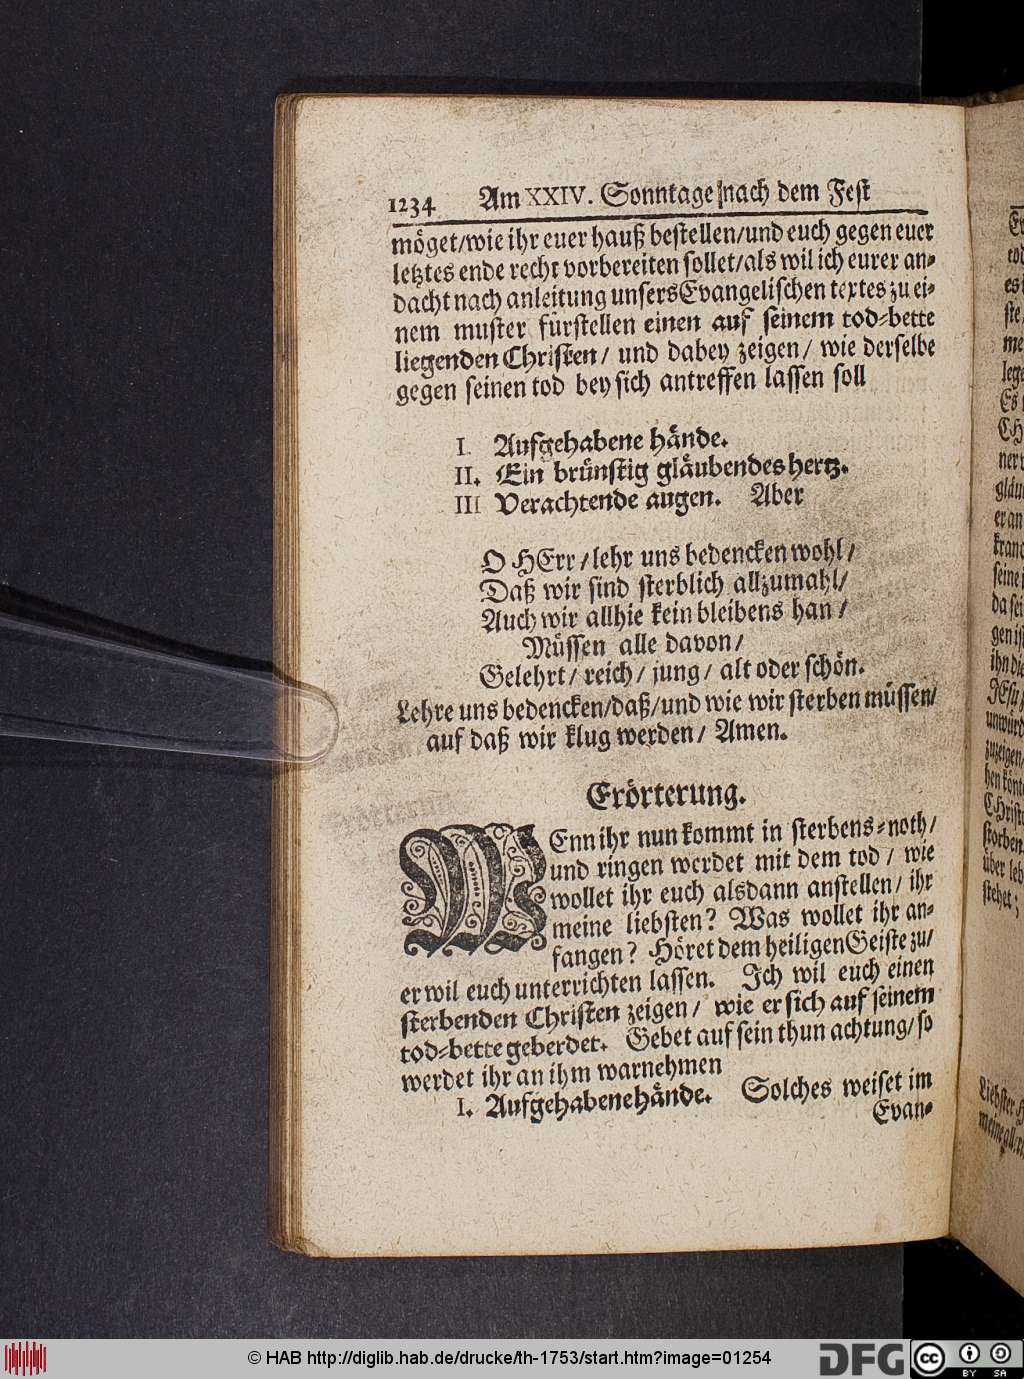 1234 Am XXIV. Sonntage nach dem Fest
möget/wie ihr euer hauß bestellen/und euch gegen euer
letztes ende recht vorbereiten sollet/als wil ich eurer an-
dacht nach anleitung unsers Evangelischen textes zu ei-
nem muster fürstellen einen auf seinem tod-bette
liegenden Christen/ und dabey zeigen/ wie derselbe
gegen seinen tod bey sich antreffen lassen soll
I. Aufgehabene hände.
II. Ein brünstig gläubendes hertz.
III Verachtende augen. Aber
O HErr/lehr uns bedencken wohl/
Daß wir sind sterblich allzumahl/
Auch wir allhie kein bleibens han/
Müssen alle davon/
Gelehrt/ reich/ jung/ alt oder schön.
Lehre uns bedencken/daß/und wie wir sterben müssen/
auf daß wir klug werden/ Amen.
Erörterung.
WEnn ihr nun kommt in sterbens-noth/
und ringen werdet mit dem tod/ wie
wollet ihr euch alsdann anstellen/ ihr
meine liebsten? Was wollet ihr an-
fangen? Höret dem heiligen Geiste zu/
er wil euch unterrichten lassen. Ich wil euch einen
sterbenden Christen zeigen/ wie er sich auf seinem
tod-bette geberdet. Gebet auf sein thun achtung/so
werdet ihr an ihm warnehmen
I. Aufgehabene hände. Solches weiset im
Evan-
© HAB http://diglib.hab.de/drucke/th-1753/start.htm?image=01254
DFG
cc BY SA